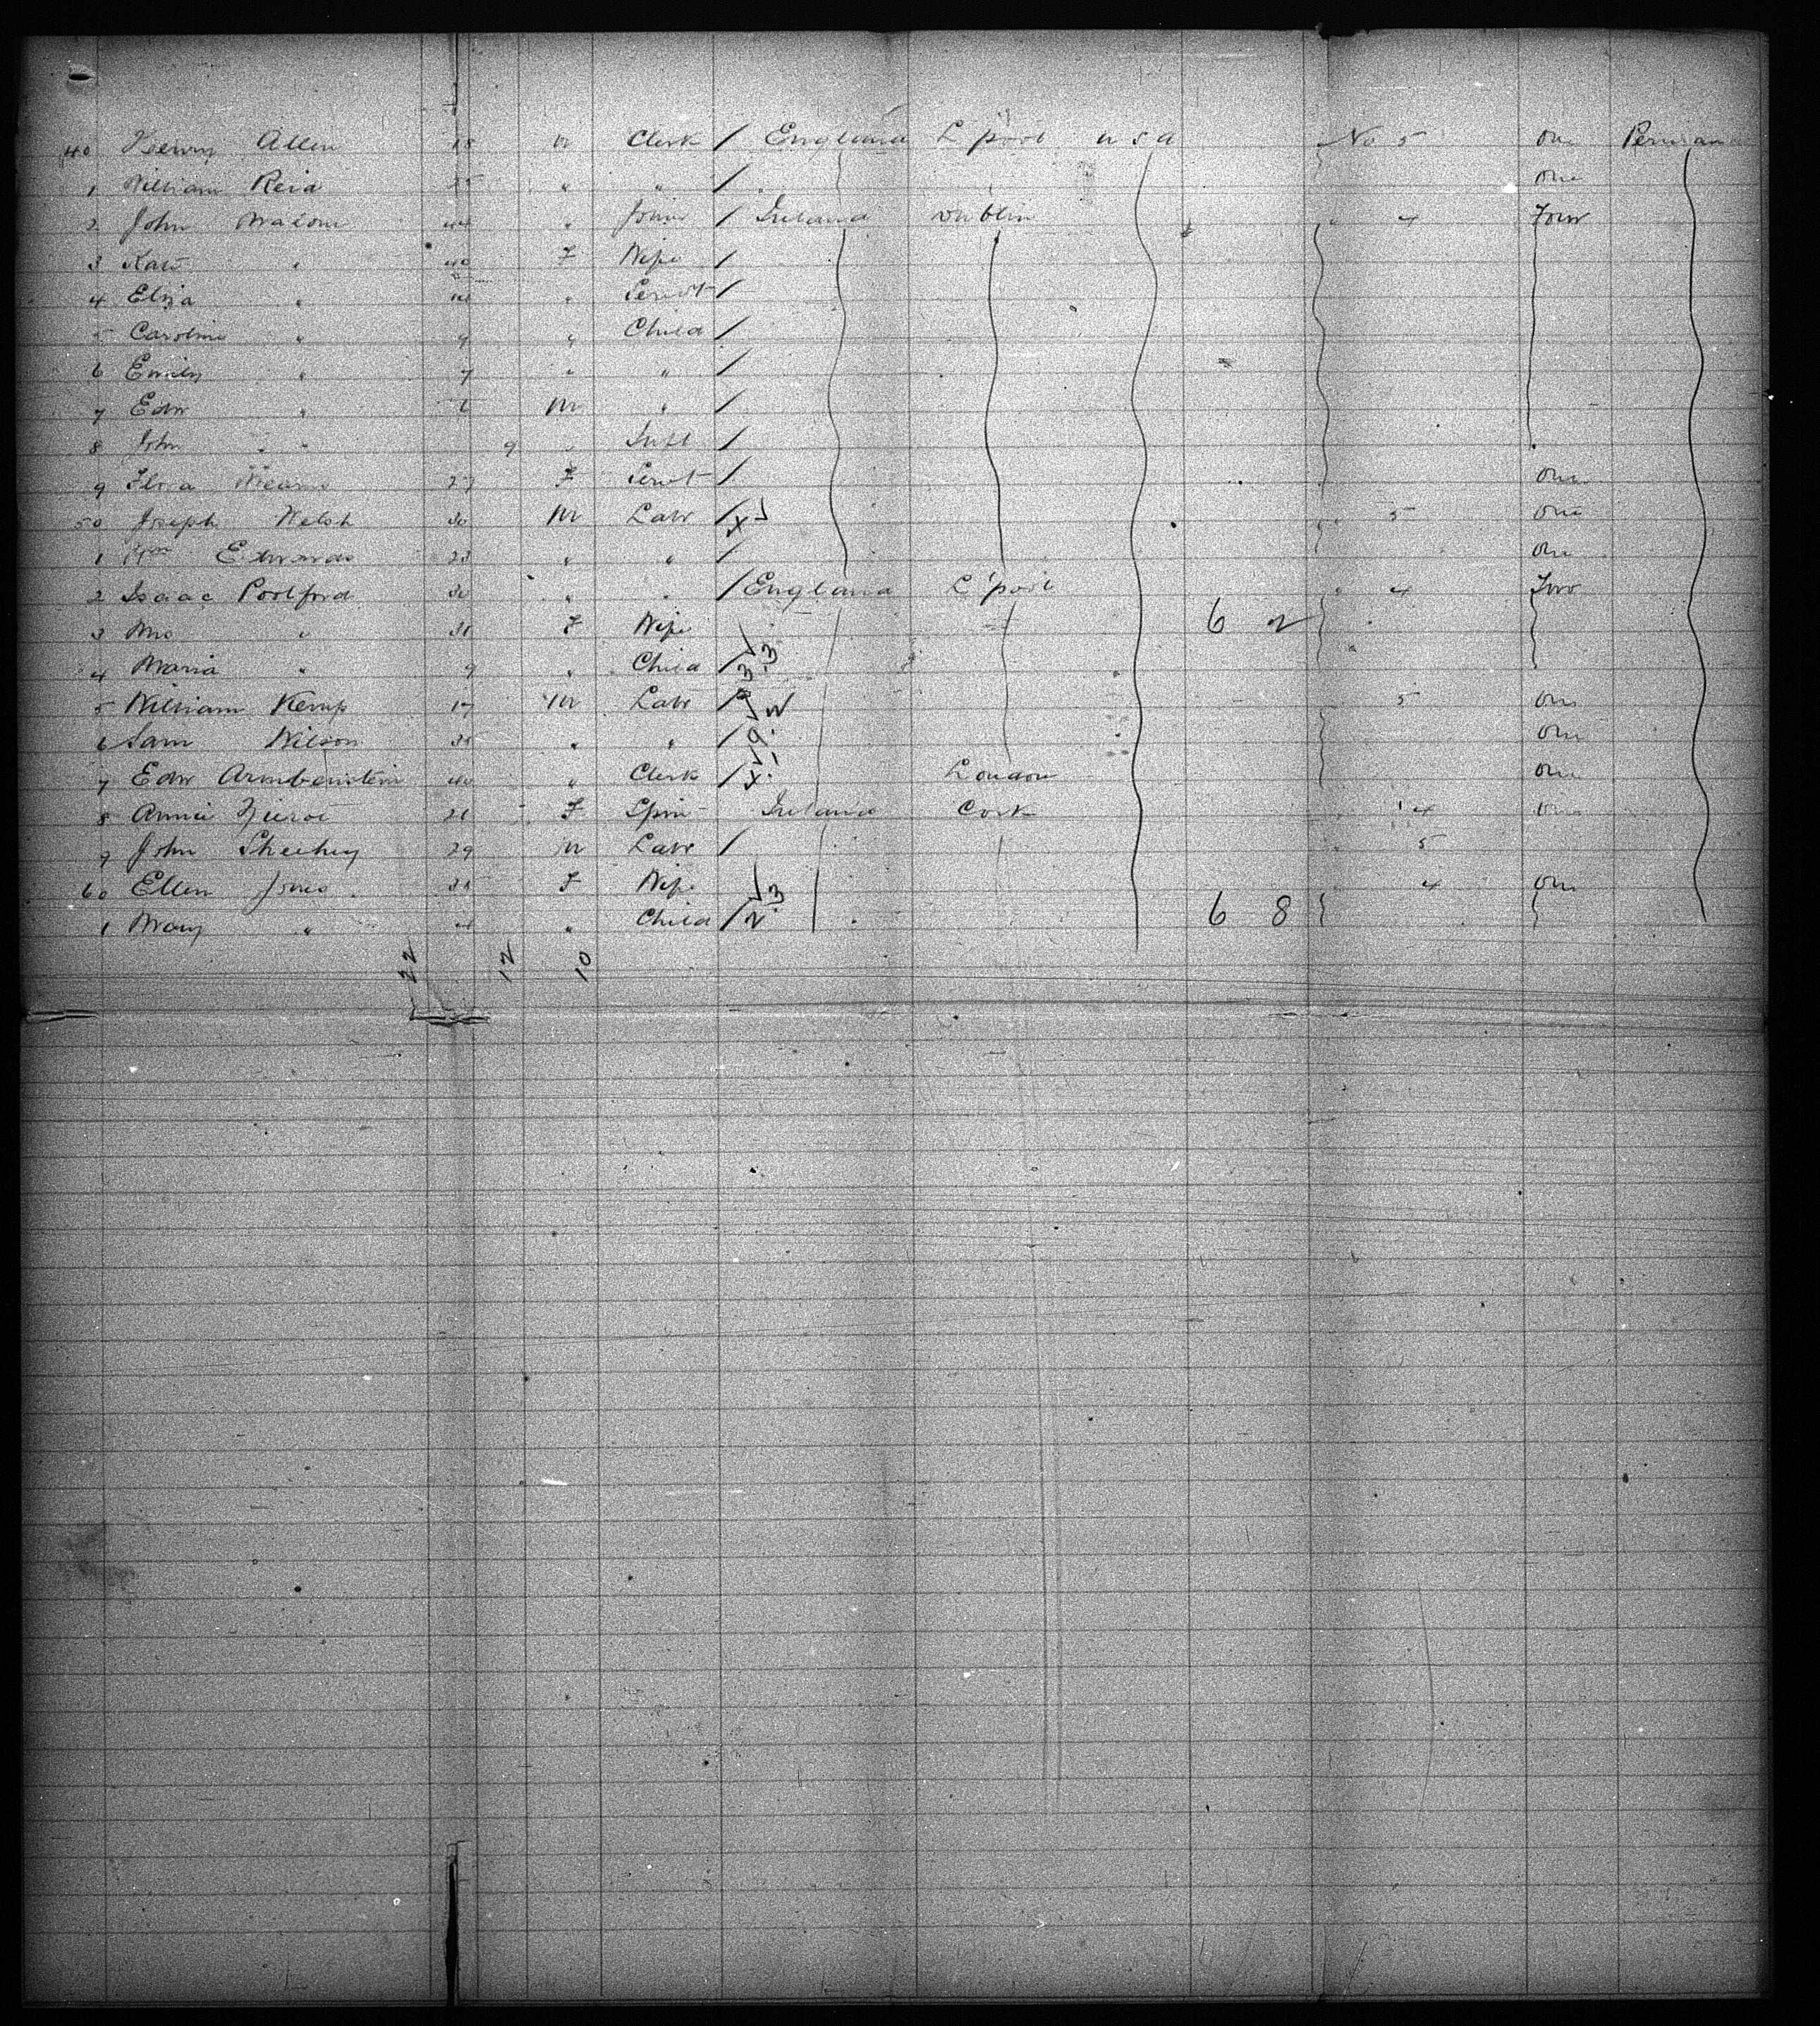 40 Henry Allen 18 m Clerk / England L'pool U S A No 5 One Peruvian
1 William Reid " " / One
2 John 44 " Joiner / Ireland Dublin " 4 Four
3 Kate " 40 F Wife /
4 Eliza " " Servt /
5 Caroline " 9 " Child /
6 Emily " 7 " " /
7 Edw " M " /
8 John " 9 " Inft /
9 Flora F Servt / One
50 Joseph Welsh 30 M Labr / " 5 One
1 Wm Edwards 23 " " / One
2 Isaac Poolford 30 " " / England L'pool " 4 Two
3 Mrs " 31 F Wife 6 2
4 Maria " 9 " Child / 3 3
5 William Kemp 17 M Labr / 5 One
6 Sam Wilson " " / One
7 Edw 40 " Clerk / London One
8 Annie F Spin Ireland Cork 4 One
9 John Sheehy 29 M Labr / 5
60 Ellen Jones F Wife 3 4 One
1 Mary " " Child / 2 6 8
22 12 10